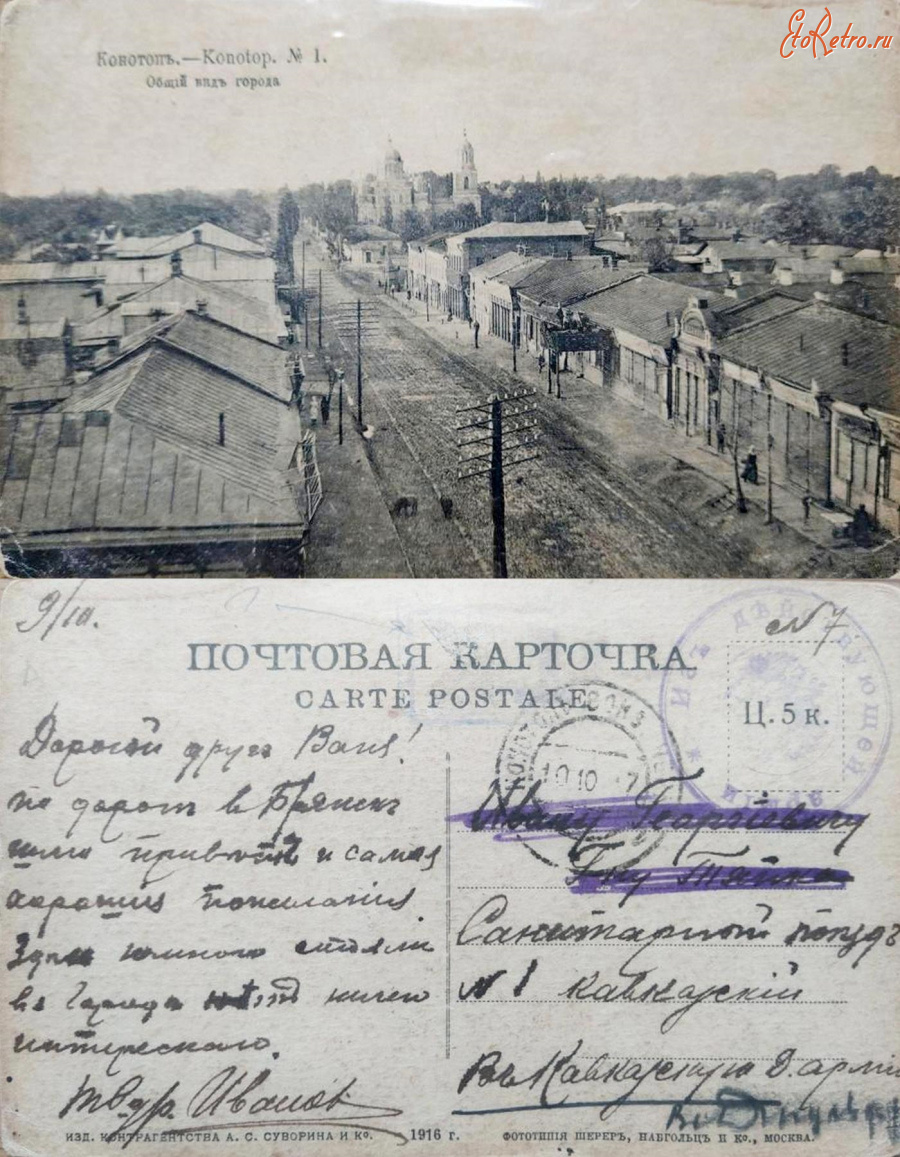 EtoRetro.ru
Конотопъ.—Konotop. № 1.
Общій видъ города
9/10.
№ 7
ПОЧТОВАЯ КАРТОЧКА
CARTE POSTALE
Ц. 5 к.
ИЗЪ ДѢЙСТВУЮЩЕЙ АРМІИ
10 10
Дорогой другъ Ваня!
по дорогѣ в Брянскъ
шлю привѣтъ и самыя
хорошія пожеланія
Здѣсь немного стояли
въ городѣ ничего
интереснаго.
Тв др. Ивановъ
Ивану Георгіевичу
Санитарный поѣздъ
№ 1 Кавказскій
Въ Кавказскую д. армію
ИЗД. КОНТРАГЕНТСТВА А. С. СУВОРИНА И Ко.
1916 г.
ФОТОТИПІЯ ШЕРЕРЪ, НАБГОЛЬЦЪ И Ко., МОСКВА.